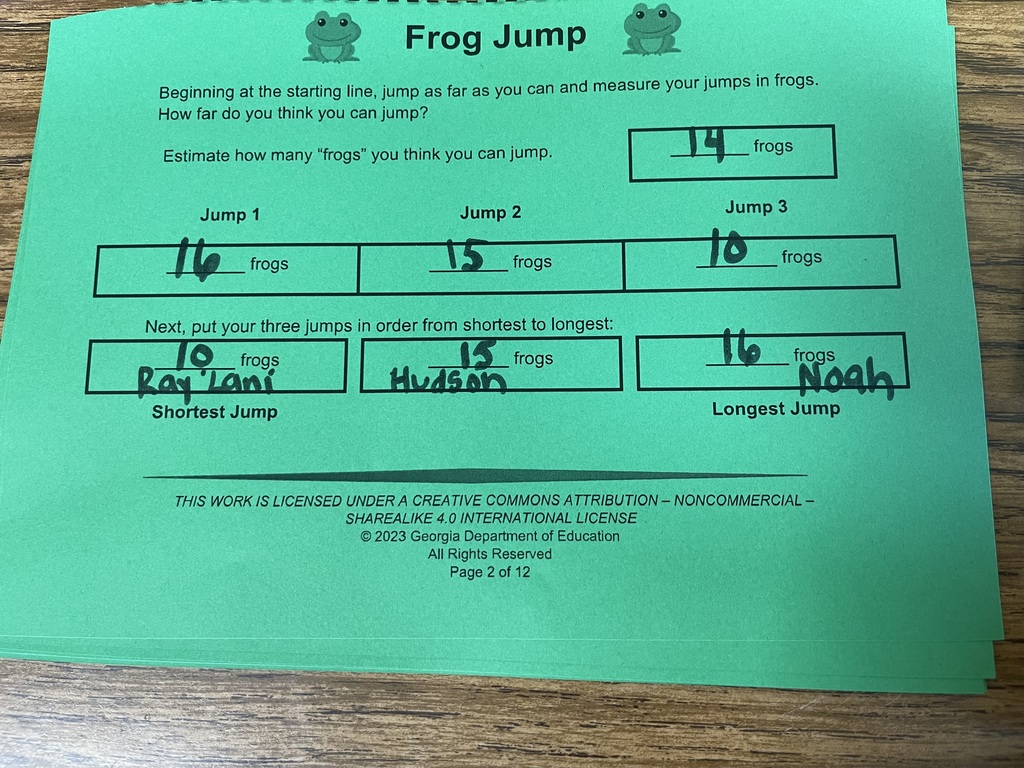 Frog Jump
Beginning at the starting line, jump as far as you can and measure your jumps in frogs.
How far do you think you can jump?
Estimate how many “frogs” you think you can jump.
14 frogs
Jump 1 Jump 2 Jump 3
16 frogs 15 frogs 10 frogs
Next, put your three jumps in order from shortest to longest:
10 frogs 15 frogs 16 frogs
Ray'Lani Hudson Noah
Shortest Jump Longest Jump
THIS WORK IS LICENSED UNDER A CREATIVE COMMONS ATTRIBUTION – NONCOMMERCIAL –
SHAREALIKE 4.0 INTERNATIONAL LICENSE
© 2023 Georgia Department of Education
All Rights Reserved
Page 2 of 12